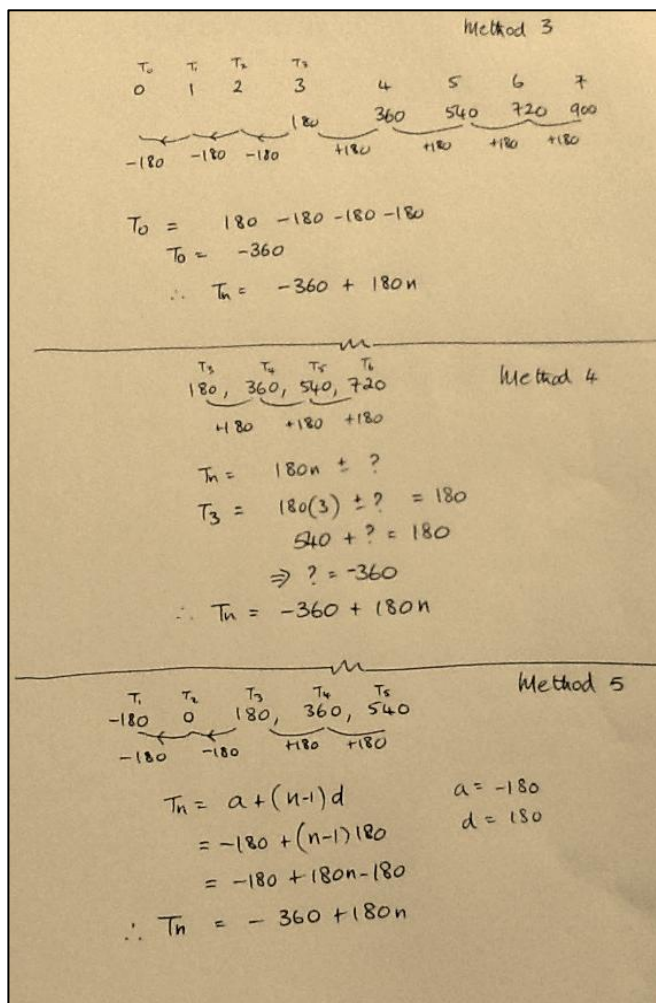 Method 3
T₀ T₁ T₂ T₃
0 1 2 3 4 5 6 7
180 360 540 720 900
-180 -180 -180 +180 +180 +180 +180
T₀ = 180 -180 -180 -180
T₀ = -360
∴ Tn = -360 + 180n
Method 4
T₃ T₄ T₅ T₆
180, 360, 540, 720
+180 +180 +180
Tn = 180n ± ?
T₃ = 180(3) ± ? = 180
540 + ? = 180
⇒ ? = -360
∴ Tn = -360 + 180n
Method 5
T₁ T₂ T₃ T₄ T₅
-180 0 180, 360, 540
-180 -180 +180 +180
Tn = a + (n-1)d a = -180
= -180 + (n-1)180 d = 180
= -180 + 180n - 180
∴ Tn = - 360 + 180n